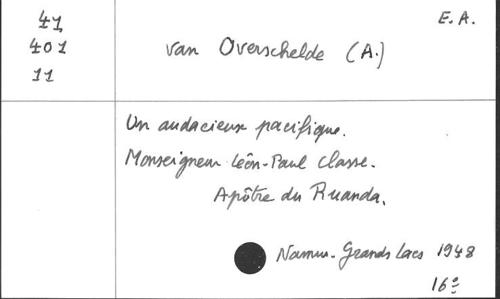 E.A.
41
401
11
van Overschelde (A.)
Un audacieux pacifique.
Monseigneur Léon-Paul Classe.
Apôtre du Ruanda.
Namur-Grands Lacs 1948
16°